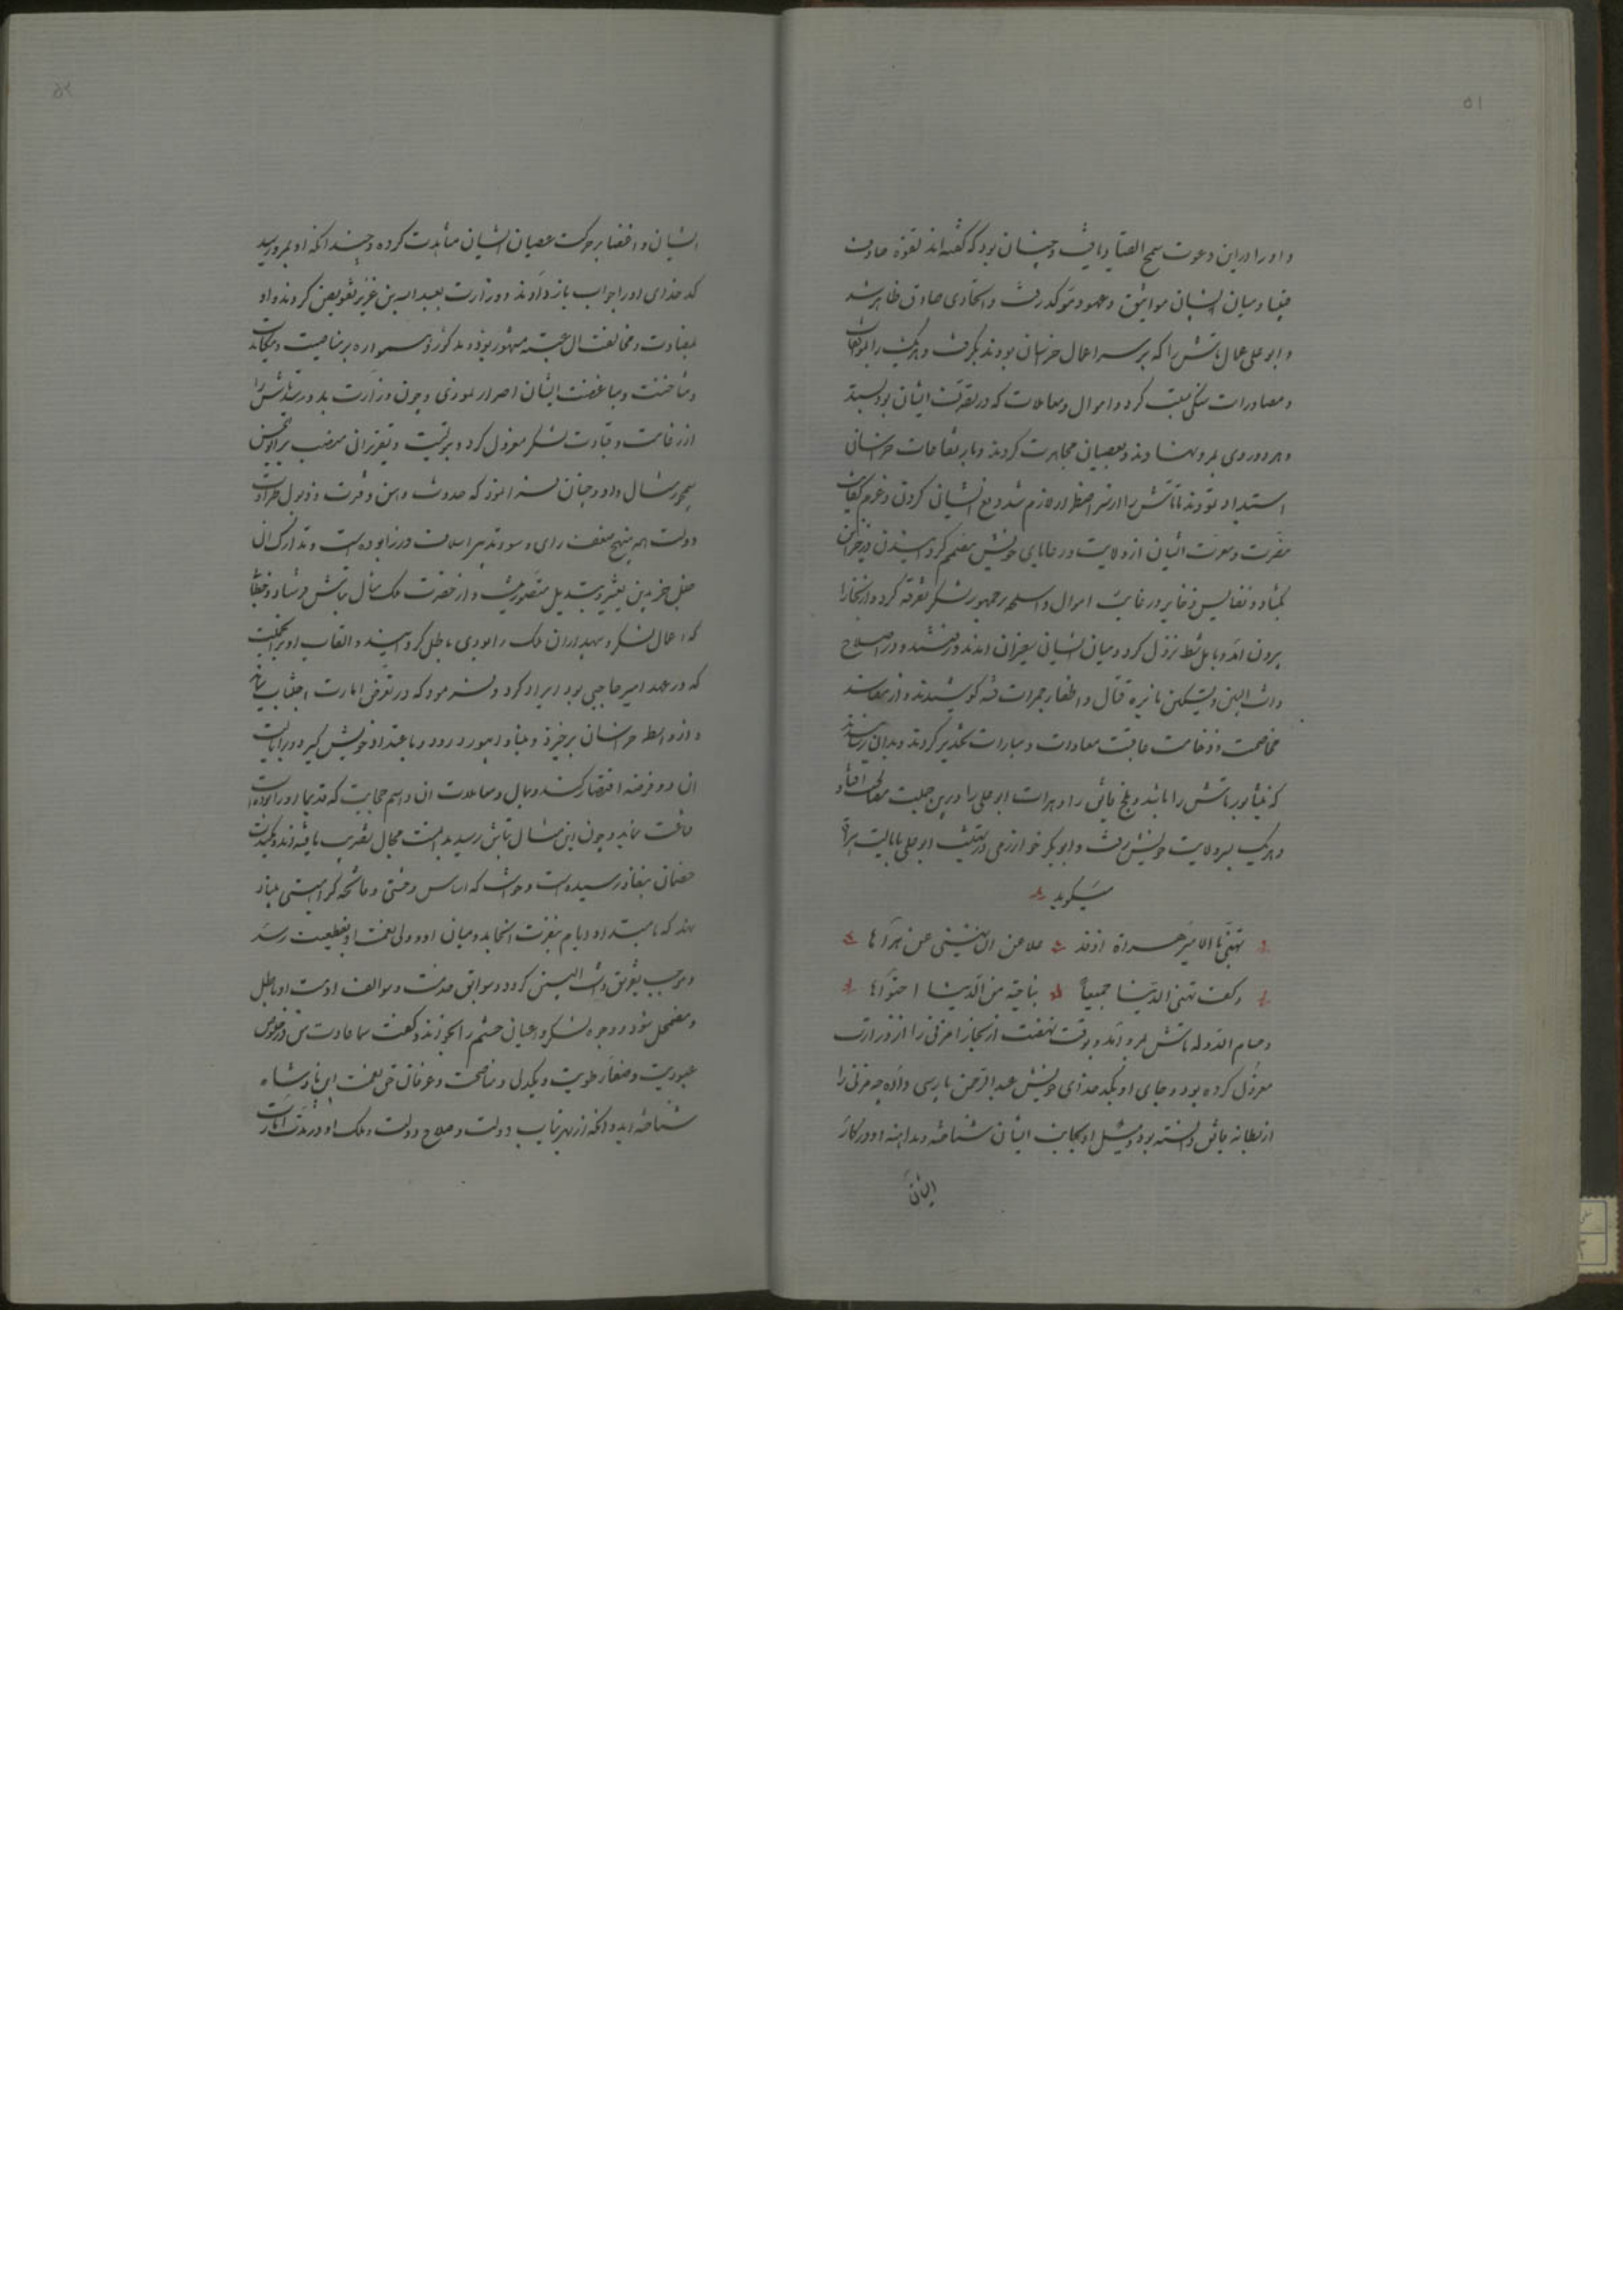 ۵۱
و او را در این دعوت سمح القیاد یافت و چنان بود که گفته‌اند لقوة صادفت
قبیسا و میان ایشان مواثیق و عهود مؤکد رفت و اتحادی صادق ظاهر شد
و ابو علی عمال تاش را که بر سر اعمال خراسان بودند بگرفت و هر یک را
و مصادرات کرد و اموال و معاملات که در تصرف ایشان بود بستد
و هر دو روی بمرو نهادند و بعصیان مجاهرت کردند و بارتفاعات خراسان
استبداد نمودند تا تاش را از سر اضطرار لازم شد دفع ایشان کردن و عزم کفایت
مضرت و معرت ایشان از ولایت و رعایای خویش مصمم گردانیدن در خزائن
بگشاد و نفایس ذخایر و رغایب اموال و اسلحه بر جمهور لشکر تفرقه کرد و از بخارا
برون آمد و بآمل شط نزول کرد و میان ایشان سفیران آمدند و رفتند و در اصلاح
ذات البین و تسکین نایره قتال و اطفاء جمرات فتنه کوشیدند و از مفاسد
مخاصمت و وخامت عاقبت معادات و مبارات تحذیر کردند و بدان رسانیدند
که نیشابور تاش را باشد و بلخ فایق را و هرات ابو علی را و برین جملت
و هر یک بسر ولایت خویش رفت و ابو بکر خوارزمی در تهنیت ابو علی بایالت هراة
میگوید
تهنی بالامیر هراة اذ قد علا عن ان یهنی عن هراها
و کیف تهنی الدنیا جمیعا بناحیة من الدنیا احتواها
و حسام الدوله تاش بمرو آمد و بوقت نهضت از بخارا مزنی را از وزارت
معزول کرده بود و جای او بکدخدای خویش عبد الرحمن پارسی داده چه مزنی را
از بطانه فایق دانسته بود و میل او بجانب ایشان شناخته و مداهنه او در کار
ایشان
۵۲
ایشان و اغضا بر حرکت عصیان ایشان مشاهدت کرده و چندانکه او بمرو رسید
کدخدای او را جواب باز دادند و وزارت بعبد الله بن عزیر تفویض کردند و او
بمعادات و مخالفت آل عتبه مشهور بود و مذکور و همواره بر مناصبت و مکاشفت
و مشاحنت و مباغضت ایشان اصرار نمودی و چون وزارت بدو رسید تاش را
از زعامت و قیادت لشکر معزول کرد و تربیت و تقریر آن منصب بر ابو الحسن
سیمجور مثال داد و چنان نمود که حدوث وهن و فترت و ذبول طراوت
دولت همه نتیجه ضعف رای و سوء تدبیر اسلاف وزرا بوده است و تدارک آن
خلل جز بدین تغییر و تبدیل متصور نیست و از حضرت ملک مثال بتاش فرستاد و خطابی
که اعمال لشکر و سپهداران ملک را بودی باطل گردانید و القاب او بر آن جملت
که در عهد امیر حاجبی بود ایراد کرد و فرمود که در تعرض امارت اجتناب نماید
و از واسطه خراسان برخیزد و بنسا و ابیورد رود و باعتداد خویش گیرد و بر ایالت
آن دو فرضه اقتصار کند و بمال و معاملات آن و اسم حجابت که قدیما او را بوده است
قناعت نماید و چون این مثال بتاش رسید بدانست مجال تضریب یافته‌اند و مکیدت
خصمان بنفاذ رسیده است و خواست که اساس وحشتی و فاتحه کراهیتی بنیاد
نهد که بامتداد ایام بنفرت انجامد و میان او و ولی نعمت او بقطیعت رسد
و موجب تفریق ذات البین گردد و سوابق خدمت و سوالف اذمت او باطل
و مضمحل شود و وجوه لشکر و اعیان حشم را بخواند و گفت شما عادت من در خلوص
عبودیت و صفاء طویت و یکدلی و مناصحت و عرفان حق نعمت این پادشاه
شناخته‌اید و آنکه از بهر ترتیب دولت و صلاح دولت و ملک او در مدت امارت